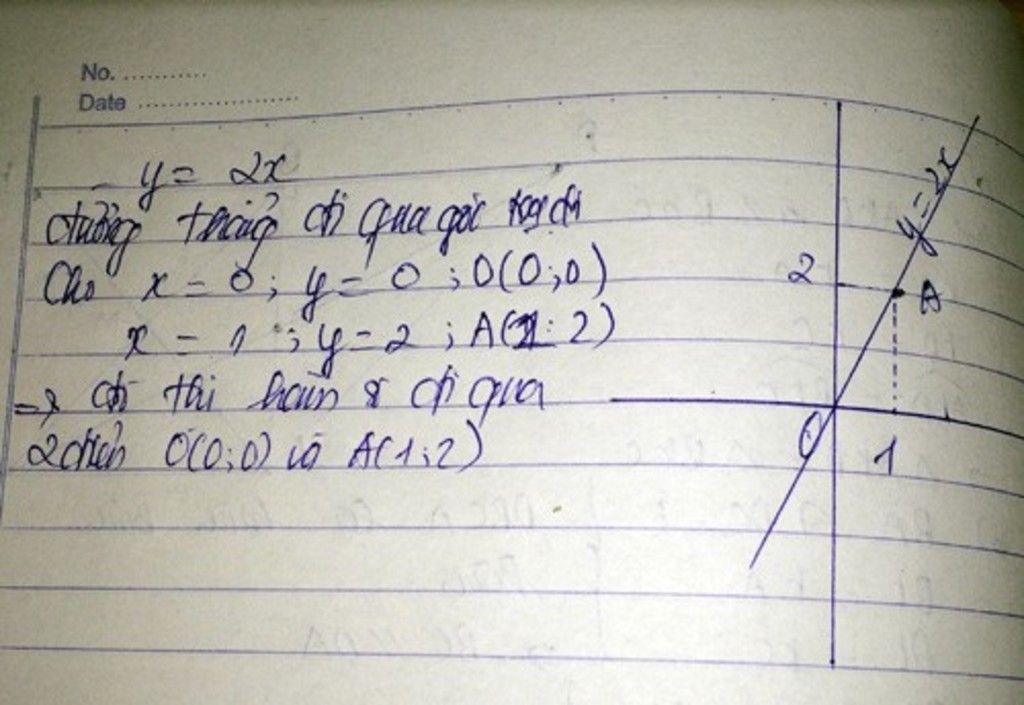 No. ...........
Date ......................
- y = 2x
đường thẳng đi qua gốc tọa độ
Cho x = 0 ; y = 0 ; O(0;0)
x = 1 ; y = 2 ; A(1; 2)
=> đồ thị hàm số đi qua
2 điểm O(0;0) và A(1;2)
y = 2x
2
A
O
1